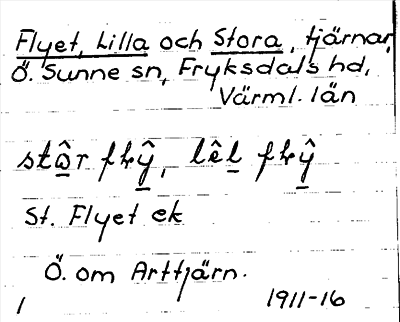 Flyet, Lilla och Stora, tjärnar,
Ö. Sunne sn, Fryksdals hd,
Värml. län
stộr flŷ̠, lêl̠ flŷ̠
St. Flyet ek
Ö. om Arttjärn.
1 1911-16